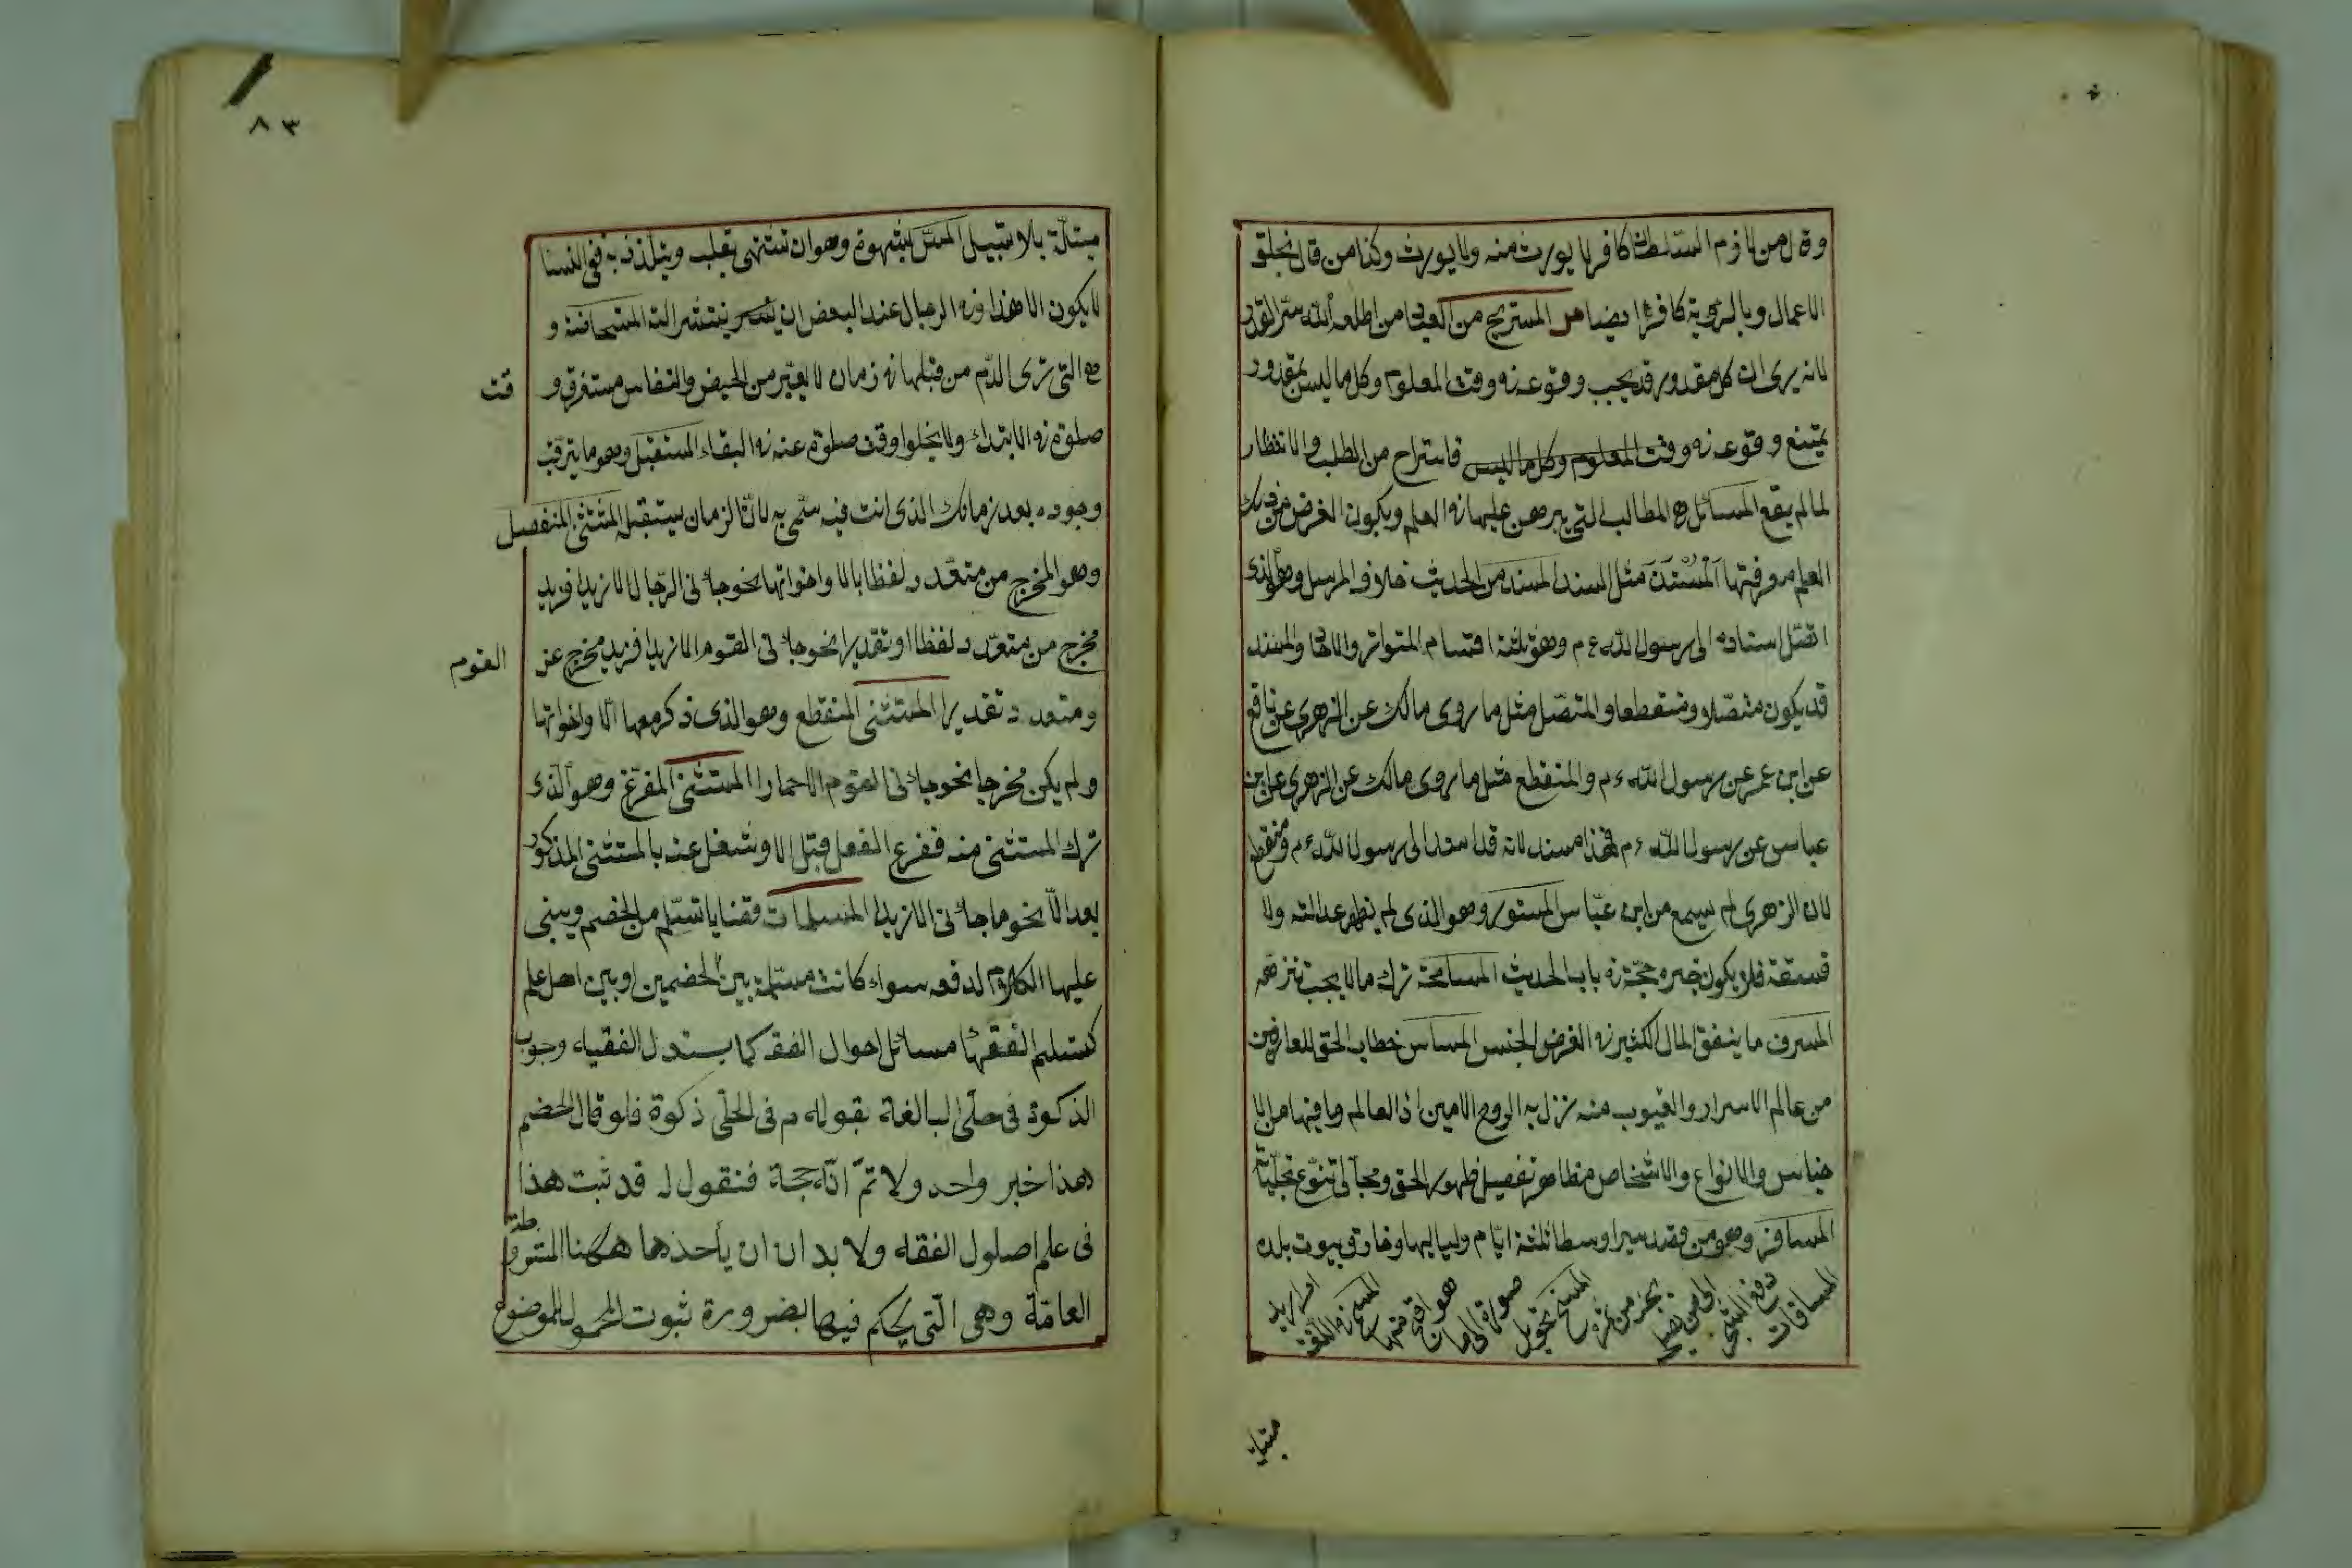 وقال من لازم السلطان كافر لا يورث منه ولا يورث وكذا من قال بخلق
الاعمال وبالرؤية كافر ايضا هل المستريح من العباد من اطلعه الله سر القدر
لانه يرى ان كل مقدور قد يجب وقوعه في وقت المعلوم وكل ما ليس بمقدور
يمتنع وقوعه في وقت المعلوم وكل ما ليس فاستراح من الطلب والانتظار
لما لم يقع المسائل هي المطالب التي يبرهن عليها في العلم ويكون الغرض من ذلك
العلم معرفتها المستند مثل السند المسند من الحديث خلاف المرسل وهو الذي
اتصل اسناده الى رسول الله ع م وهو ثلثة اقسام المتواتر والاحاد والمسند
قد يكون متصلا ومنقطعا والمتصل مثل ما روى مالك عن الزهري عن نافع
عن ابن عمر عن رسول الله ع م والمنقطع مثل ما روى مالك عن الزهري عن ابن
عباس عن رسول الله ع م فهذا مسند لانه قد اسند الى رسول الله ع م ومنقطع
لان الزهري لم يسمع من ابن عباس المستور وهو الذي لم يظهر عدالته ولا
فسقه فلا يكون خبره حجة في باب الحديث المسامحة ترك ما لا يجب تنزهه
المسرف ما ينفق المال الكثير في الغرض الخسيس المسامر خطاب الحق للعارفين
من عالم الاسرار والغيوب منه نزل به الروح الامين اذ العالم وما فيها من الا
جناس والانواع والاشخاص مظاهر تفصيل ظهور الحق ومجالى تنوع تجلياته
المسافر وهو من قصد سيرا وسطا ثلثة ايام ولياليها وفارق بيوت بلده
المساقات دفع الشجر الى من يصلح بجزء من ثمره المسخ تحويل صورة الى ما هو اقبح منها المسح في اللغة امرار يد
مبتلة
٨٣
مبتلة بلا تسييل المس بشهوة وهو ان تشتهي بقلب ويتلذذ به ففي النسا
لا يكون الا هذا وفي الرجال عند البعض ان ينتشر الته المستحاضة و
هي التي ترى الدم من قبلها في زمان لا يعتبر من الحيض والنفاس مستغرق و
قت
صلوة في الابتداء ولا يخلوا وقت صلوة عنه في البقاء المستقبل وهو ما يترقب
وجوده بعد زمانك الذي انت فيه سمى به لان الزمان يستقبل المستثنى المنفصل
وهو المخرج من متعدد لفظا بالا واخواتها نحو جاءنى الرجال الا زيدا فزيد
مخرج من متعدد لفظا او تقديرا نحو جاءنى القوم الا زيدا فزيد مخرج عن
القوم
ومتعدد تقديرا المستثنى المنقطع وهو الذي ذكر معها الا واخواتها
ولم يكن مخرجا نحو جاءنى القوم الا حمارا المستثنى المفرغ وهو الذي
ترك المستثنى منه ففرغ الفعل قبل الا وشغل عنه بالمستثنى المذكور
بعد الا نحو ما جاءنى الا زيد المسلمات قضايا تسلم من الخصم ويبنى
عليها الكلام لدفعه سواء كانت مسلمة بين الخصمين او بين اهل علم
كتسليم الفقهاء مسائل احوال الفقه كما يستدل الفقيه وجوب
الذكوة في حلى البالغة بقوله م فى الحلى ذكوة فلو قال الخصم
هذا خبر واحد ولا تم انه حجة فنقول ل قد ثبت هذا
فى علم اصلول الفقه ولا بد ان ان يأحذها هكهنا المشروطة
العامة وهي التي يحكم فيها بضرورة ثبوت المحمول للموضوع